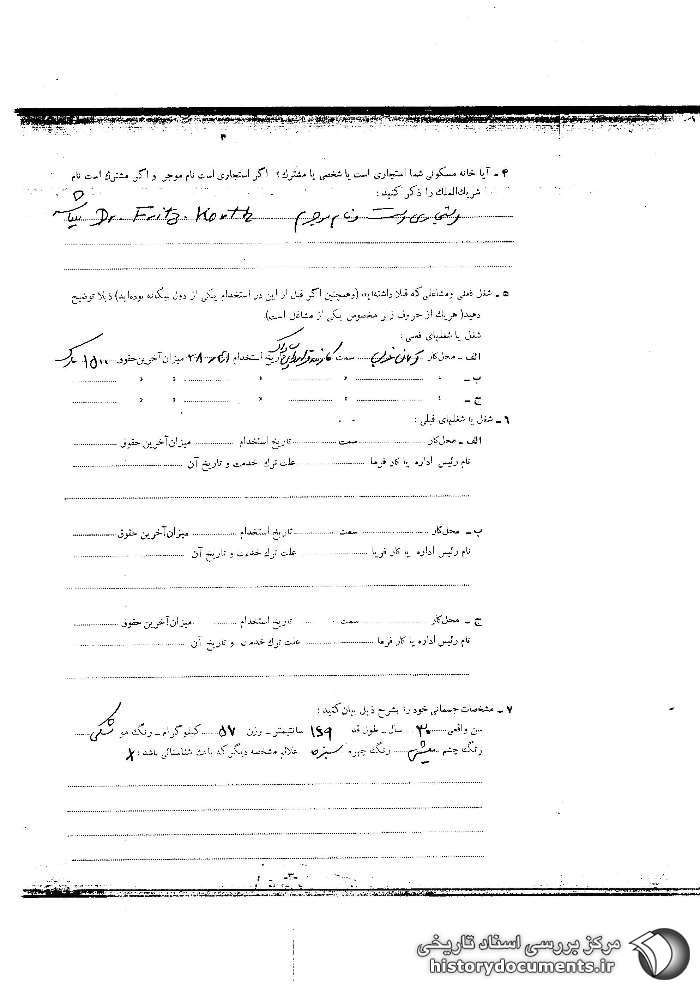 ۴ ـ آیا خانه مسکونی شما استیجاری است یا شخصی یا مشترک؟ اگر استیجاری است نام موجر و اگر مشترک است نام
شریك‌الملك را ذکر کنید :
Dr. Fritz. Korth
۵ ـ شغل فعلی ومشاغلی که قبلا داشته‌اید، (وهمچنین اگر قبل از این در استخدام یکی از دول بیگانه بوده‌اید) ذیلا توضیح
دهید( هریك از حروف زیر مخصوص یکی از مشاغل است).
شغل یا شغلهای فعلی :
الف ـ محل‌کار سمت تاریخ استخدام میزان آخرین حقوق ۱۵۰۰ مارک
ب ـ " " " "
ج ـ " " " "
۶ ـ شغل یا شغلهای قبلی :
الف ـ محل‌کار سمت تاریخ استخدام میزان‌آخرین حقوق
نام رئیس اداره یا کار فرما علت ترك خدمت و تاریخ آن
ب ـ محل‌کار سمت تاریخ استخدام میزان‌آخرین حقوق
نام رئیس اداره یا کار فرما علت ترك خدمت و تاریخ آن
ج ـ محل‌کار سمت تاریخ استخدام میزان‌آخرین حقوق
نام رئیس اداره یا کار فرما علت ترك خدمت و تاریخ آن
۷ ـ مشخصات جسمانی خود را بشرح ذیل بیان کنید :
سن واقعی ۳۰ سال ـ طول قد ۱۶۹ سانتیمتر ـ وزن ۵۷ کیلو گرام ـ رنگ مو مشکی
رنگ چشم میشی رنگ چهره سبزه علائم مشخصه دیگر که باعث شناسائی باشد :
ـ۳ـ
مرکز بررسی اسناد تاریخی
historydocuments.ir